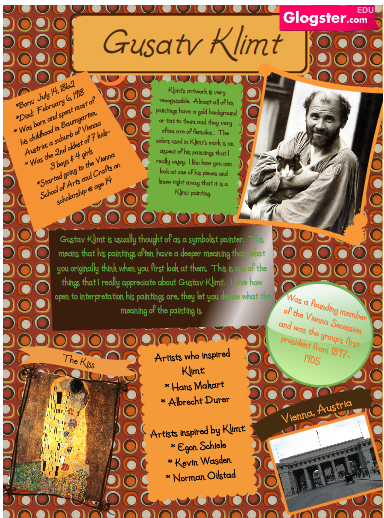 EDU
Glogster.com
Gusatv Klimt
*Born: July 14, 1862
*Died: February 6, 1918
* Was born and spent most of
his childhood in Baumgarten,
Austria; a suburb of Vienna
* Was the 2nd oldest of 7 kids-
3 boys & 4 girls
*Started going to the Vienna
School of Arts and Crafts on
scholarship @ age 14
Klimt's artwork is very
recognizable. Almost all of his
paintings have a gold background
or tint to them and they very
often are of females. The
colors used in Klimt's work is an
aspect of his paintings that I
really enjoy. I like how you can
look at one of his pieces and
know right away that it is a
Klimt painting.
Gustav Klimt is usually thought of as a symbolist painter. This
means that his paintings often have a deeper meaning than what
you originally think when you first look at them. This is one of the
things that I really appreciate about Gustav Klimt. I love how
open to interpretation his paintings are, they let you decide what the
meaning of the painting is.
Was a founding member
of the Vienna Secession
and was the groups first
president from 1897-
1905
The Kiss
Artists who inspired
Klimt:
* Hans Makart
* Albrecht Durer
Artists inspired by Klimt:
* Egon Schiele
* Kevin Wasden
* Norman Oilstad
Vienna, Austria